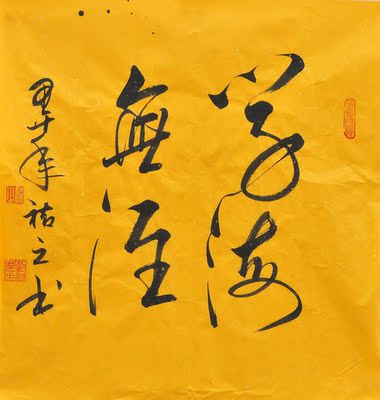 学海
無涯
甲午年祐之书